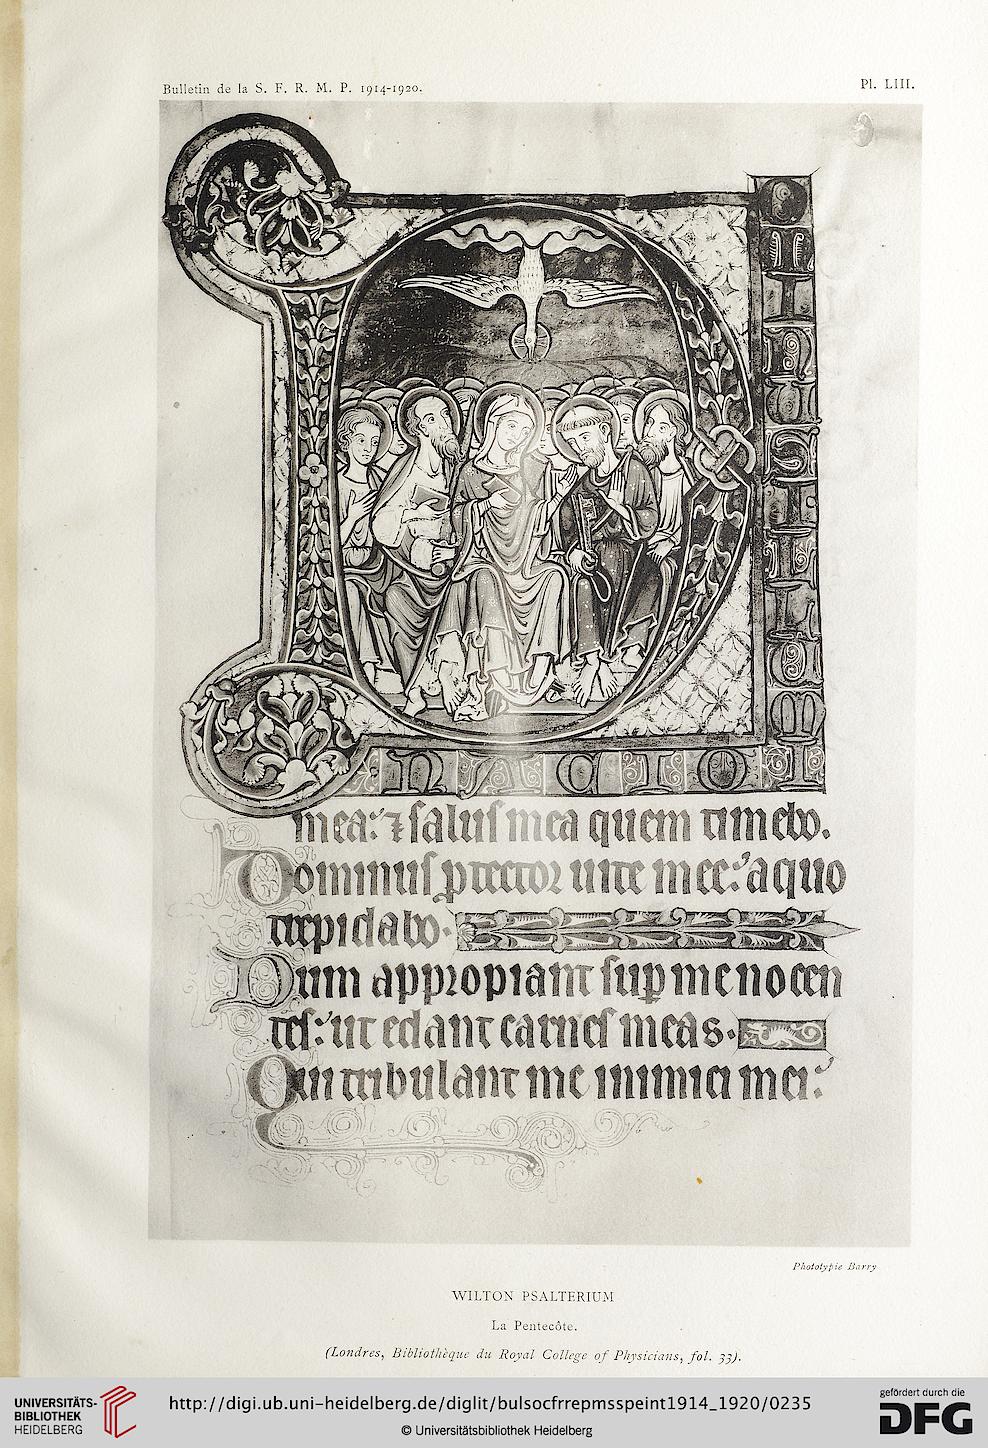 Bulletin de la S. F. R. M. P. 1914-1920.
Pl. LIII.
DOMINUS ILLUMI
NACIO
mea: ⁊ saluſ mea quem timebo.
Dominuſ ꝓtector uite mee: a quo
trepidabo.
Dum appropiant ſup̲ me nocen
teſ: ut edant carneſ meas.
Qui tribulant me inimici mei:
Phototypie Barry
WILTON PSALTERIUM
La Pentecôte.
(Londres, Bibliothèque du Royal College of Physicians, fol. 33).
UNIVERSITÄTS-
BIBLIOTHEK
HEIDELBERG
http://digi.ub.uni-heidelberg.de/diglit/bulsocfrrepmsspeint1914_1920/0235
© Universitätsbibliothek Heidelberg
gefördert durch die
DFG